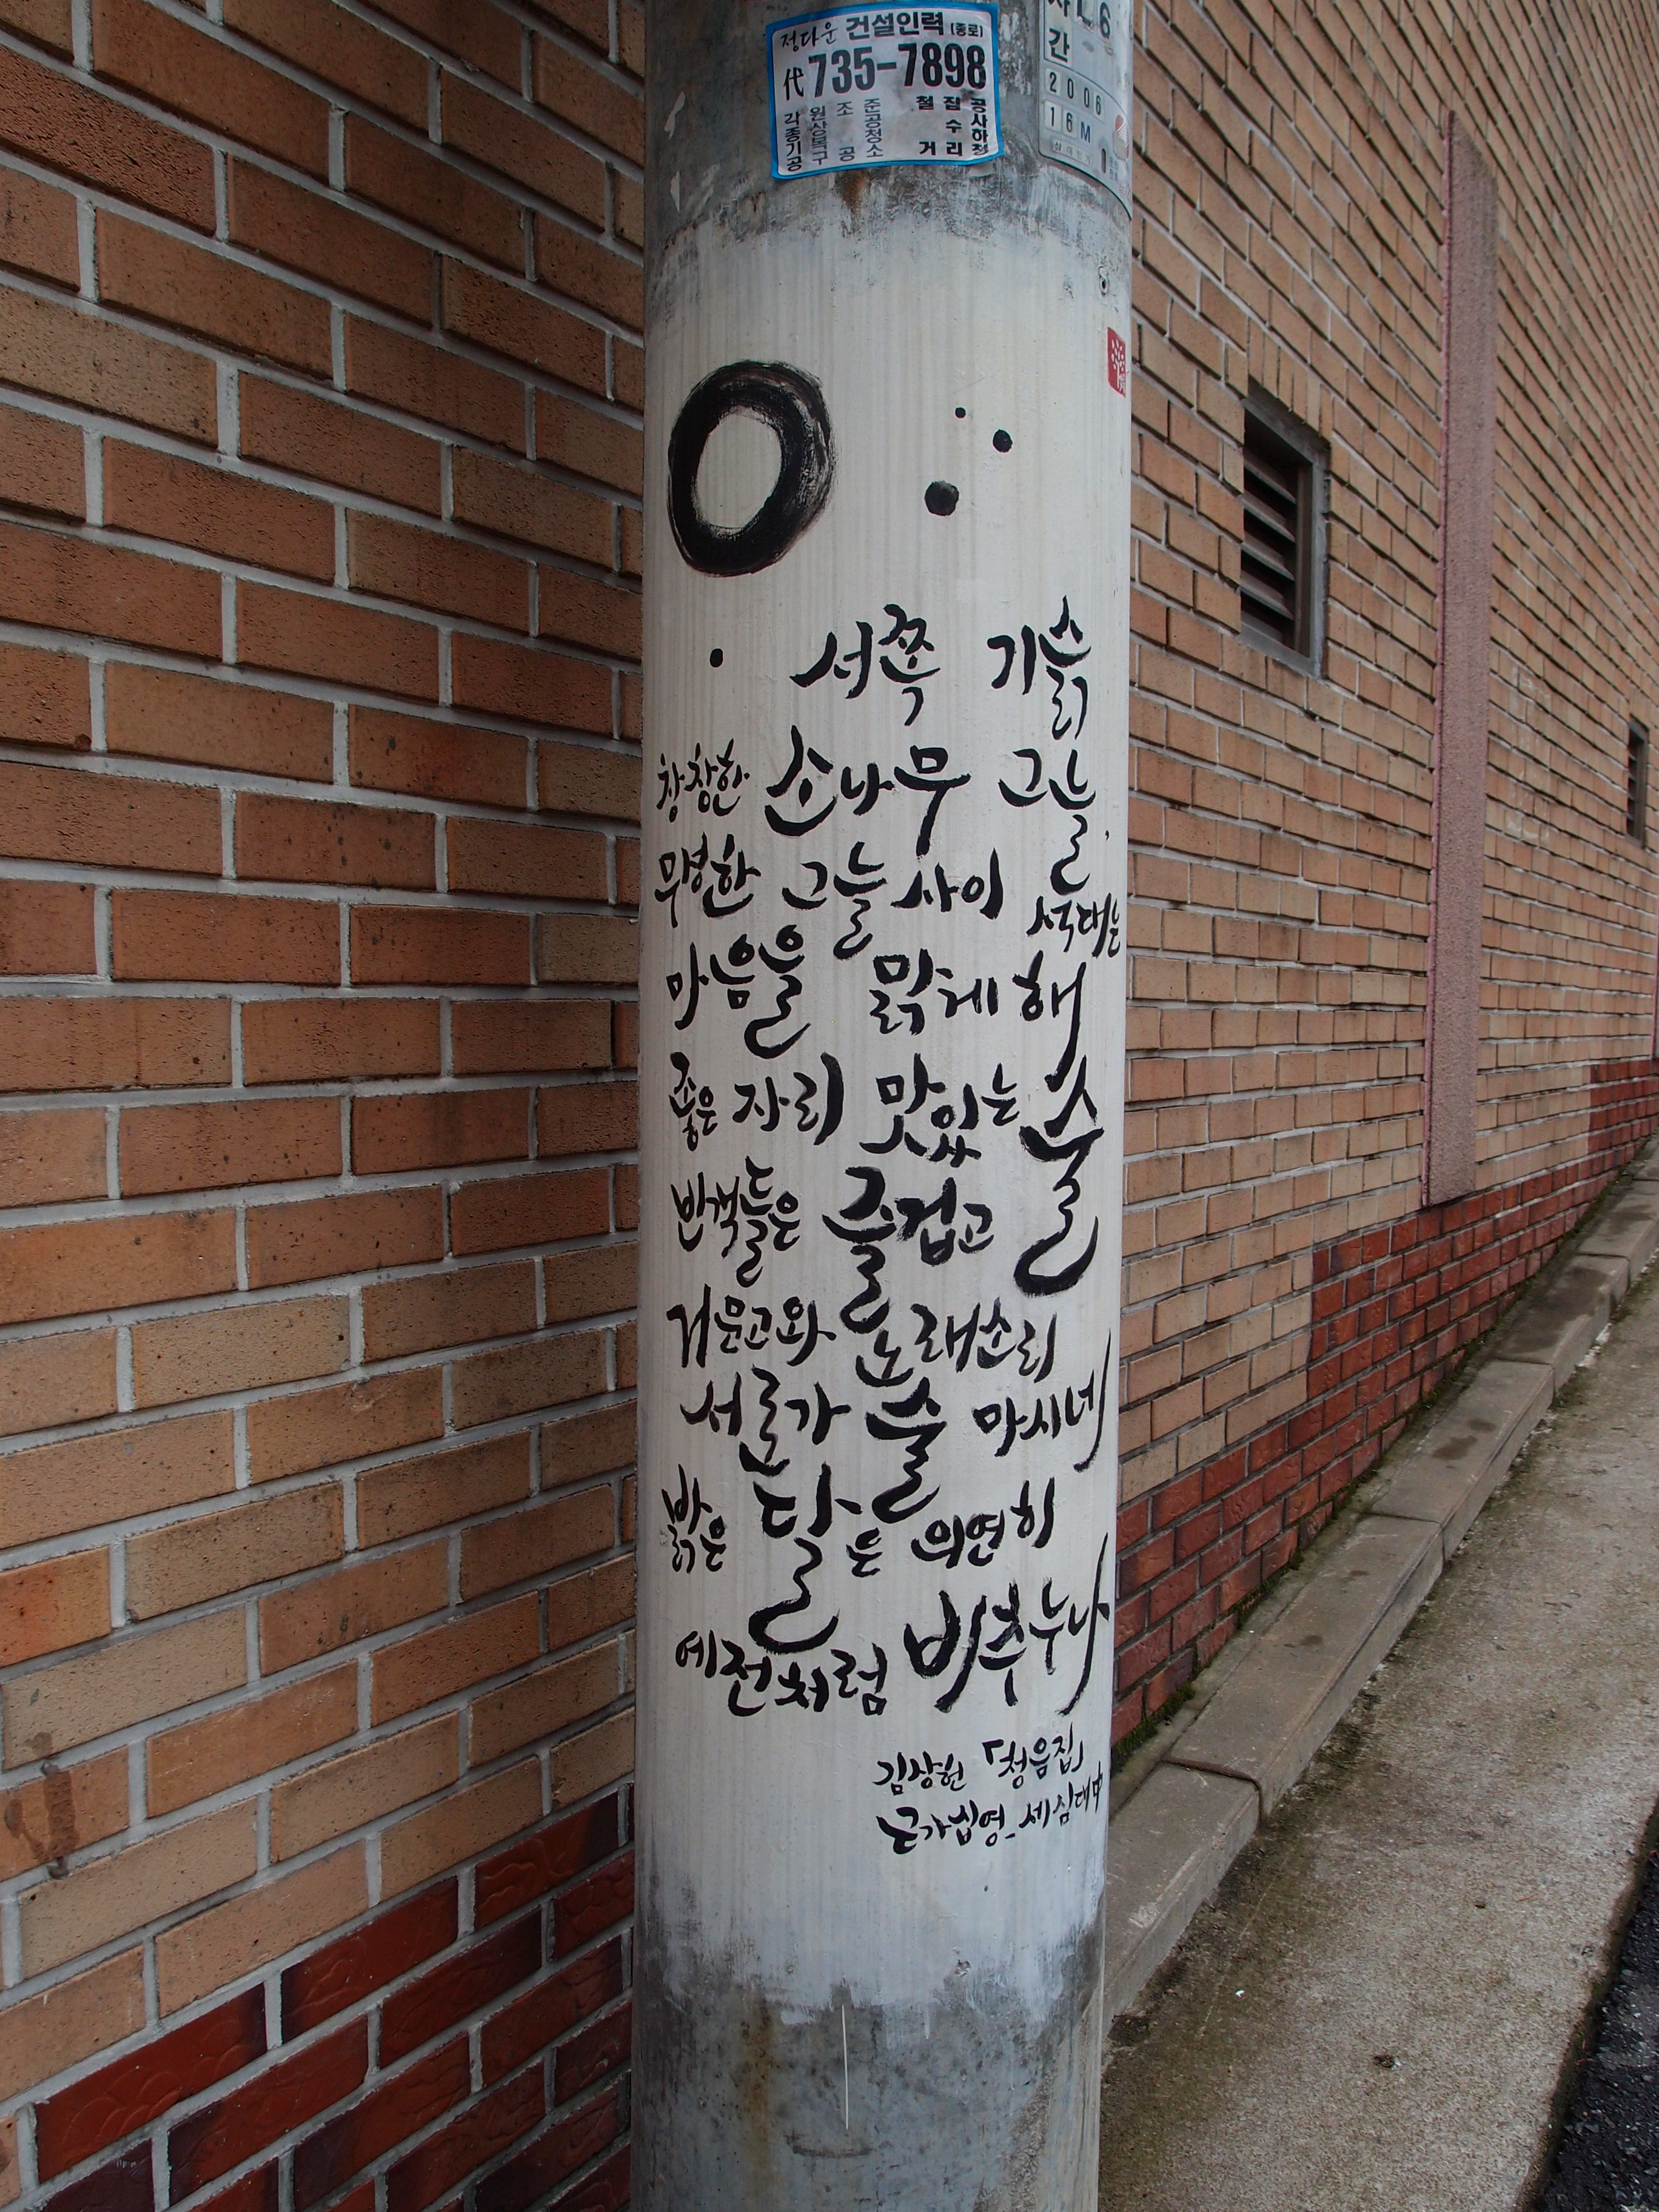 정다운 건설인력 (종로)
代 735-7898
각종기공 원상복구 조공 준공청소 철거 잡수리 공사하청
간
2006
16M
서쪽 기슭
창창한 소나무 그늘
무성한 그늘 사이 석대는
마음을 맑게 해
좋은 자리 맛있는 술
반객들은 즐겁고
거문고와 노래소리
서로가 술 마시네
밝은 달은 의연히
예전처럼 비추누나
김상헌 「청음집」
근가십영_세심대中